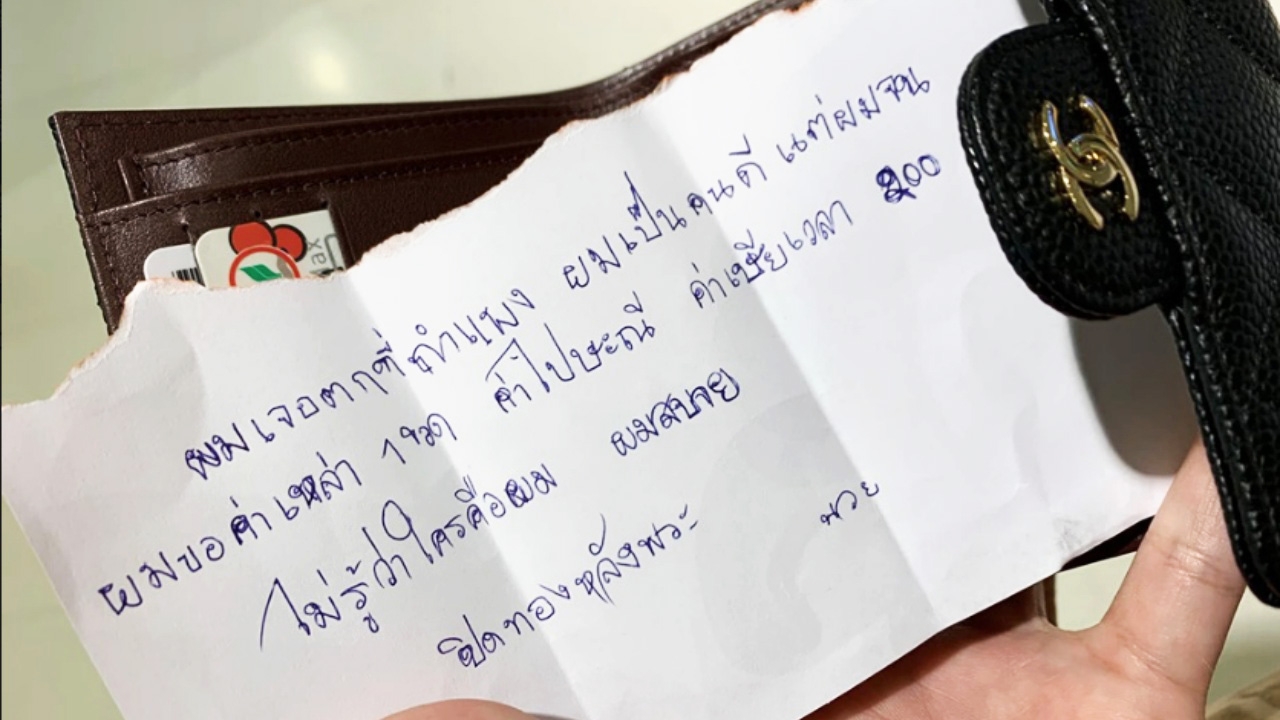 ผมเจอตกที่รำแพง ผมเป็นคนดี แต่ผมจน
ผมขอค่าเหล่า 1 ขวด ค่าไปษะณี ค่าเชียเวลา 200
ไม่รู้ว่าใครคือผม ผมสบาย
ปิดทองหลังพระ